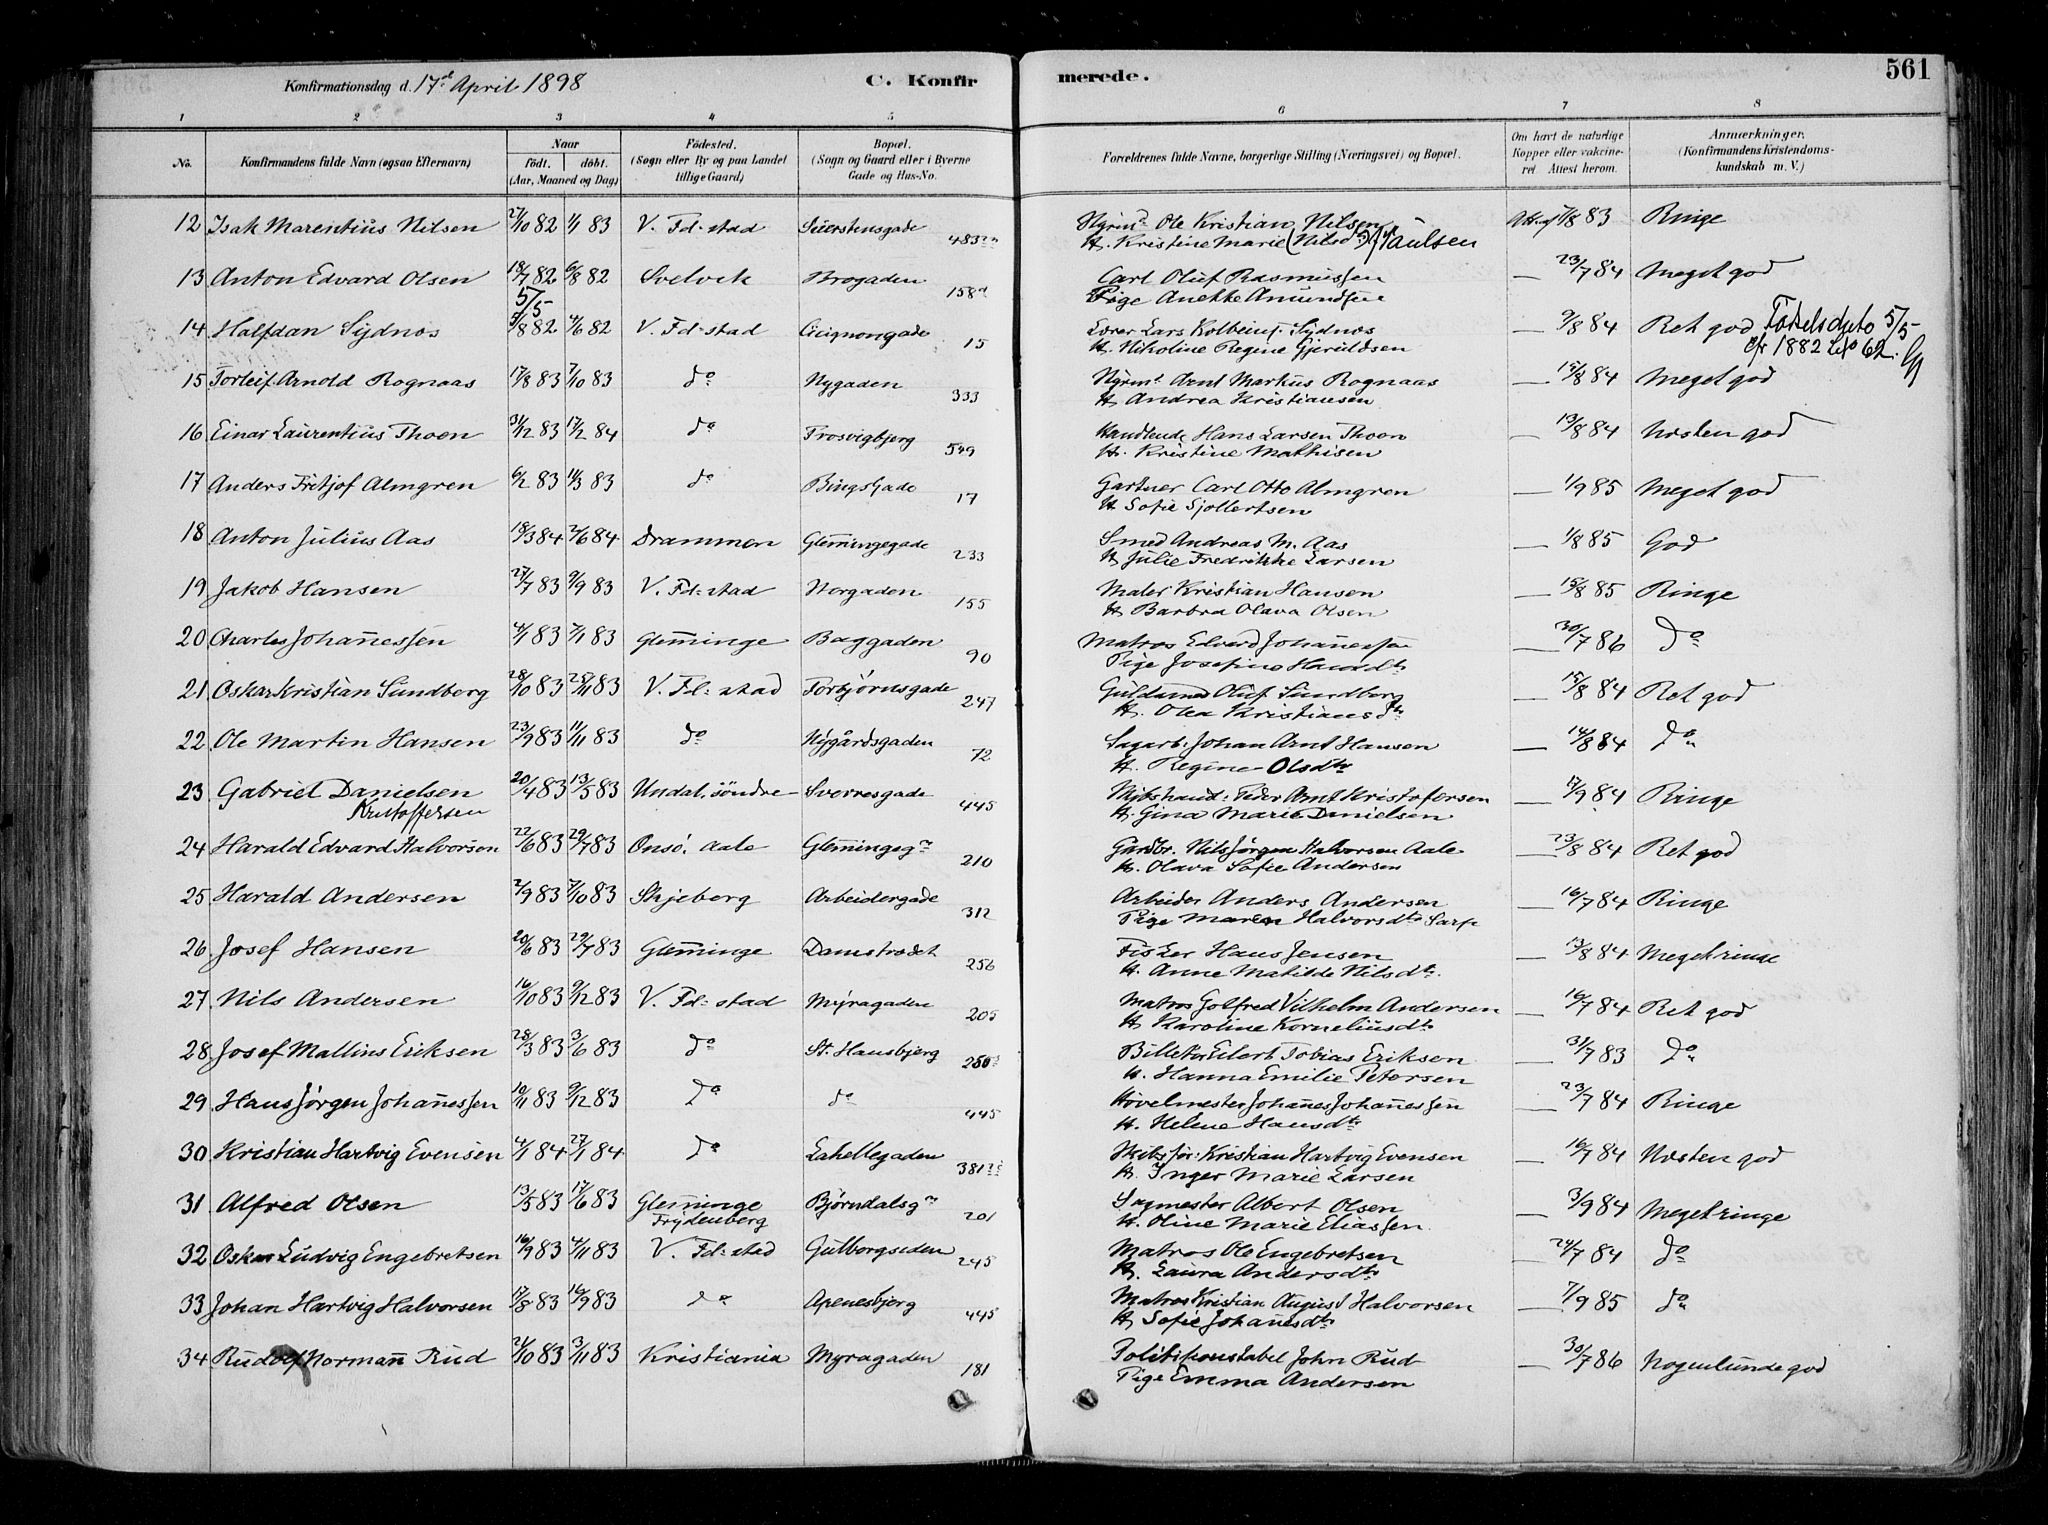 Konfirmationsdag d. 17de April 1898 C. Konfirmerede. 561
1 2 3 4 5 6 7 8
No. Konfirmandens fulde Navn (ogsaa Efternavn) Naar født. døbt. (Aar, Maaned og Dag) Fødested. (Sogn eller By og paa Landet tillige Gaard) Bopæl. (Sogn og Gaard eller i Byerne Gade og Hus-No. Forældrenes fulde Navne, borgerlige Stilling (Næringsvei) og Bopæl. Om havt de naturlige Kopper eller vakcineret. Attest herom. Anmærkninger. (Konfirmandens Kristendomskundskab m. V.)
12 Isak Marentius Nilsen 27/10 82 1/1 83 V. Fd:stad 483 Ole Kristian Nilsen Att. af 7/8 83 Ringe
H. Kristine Marie (Nilsdtr) Paulsen
13 Anton Edvard Olsen 18/7 82 6/8 82 Svelvik Brogaden 158 Carl Oluf Rasmussen — 23/7 84 Meget god
Pige Anette Amundsen
5/5
14 Halfdan Sydnos 5/8 82 4/6 82 V. Fd:stad Cicignongade 15 Lars Kolbeins. Sydnos — 9/8 84 Ret god Fødselsdato 5/5
H. Nikoline Regine Gjeruldsen cfr 1882 62.
15 Torleif Arnold Rognaas 17/8 83 7/10 83 do Nygaden 333 Arnt Markus Rognaas — 15/8 84 Meget god
H. Andrea Kristiansen
16 Einar Laurentius Thoen 31/12 83 17/2 84 do Trosvigbjerg 599 Handlende Hans Larsen Thoen — 13/8 84 Næsten god
H. Kristine Mathisen
17 Anders Fritjof Almgren 6/2 83 11/3 83 do Bingsgade 17 Gartner Carl Otto Almgren — 1/9 85 Meget god
H Sofie Sjollertsen
18 Anton Julius Aas 18/3 84 2/6 84 Drammen Glemmingegade 233 Smed Andreas M. Aas — 1/8 85 God
H Julie Fredrikke Larsen
19 Jakob Hansen 27/7 83 9/9 83 V. Fd:stad Norgaden 155 Maler Kristian Hansen — 15/8 85 Ringe
H Barbra Olava Olsen
20 Charles Johannessen 4/1 83 7/1 83 Glemminge Baggaden 90 Matros Edvard Johannessen — 30/7 86 do
Pige Josefine Hansdtr
21 Oskar Kristian Sundberg 28/10 83 25/11 83 V. Fd:stad Torbjørnsgade 247 Guldsmed Oluf Sundberg — 15/8 84 Ret god
H. Olea Kristiansdtr
22 Ole Martin Hansen 23/9 83 11/11 83 do Nygårdsgaden 72 Sagarb. Johan Arnt Hansen — 14/8 84 do
H. Regine Olsdtr
23 Gabriel Danielsen 20/4 83 13/5 83 Undal, söndre Sverresgade 445 Peder Arnt Kristofersen — 17/9 84 Ringe
Kristoffersen H. Gina Marie Danielsen
24 Harald Edvard Halvorsen 22/6 83 29/7 83 Onsö, Aale Glemmingegn 210 Gårdbr. Nils Jørgen Halvorsen Aale — 23/8 84 Ret god
H. Olava Sofie Andersen
25 Harald Andersen 2/9 83 7/10 83 Skjeberg Arbeidergade 312 Arbeider Anders Andersen — 16/7 84 Ringe
Pige Maren Halvorsdtr Sarp
26 Josef Hansen 20/6 83 29/7 83 Glemminge Damstrædet 256 Fisker Hans Jensen — 13/8 84 Meget ringe
H. Anne Matilde Nilsdtr.
27 Nils Andersen 16/10 83 9/12 83 V. Fd:stad Myragaden 205 Matros Golfred Vilhelm Andersen — 16/7 84 Ret god
H Karoline Korneliusdtr
28 Josef Mallius Eriksen 28/3 83 3/6 83 do St. Hansbjerg 250 Eilert Tobias Eriksen — 31/7 83 do
H. Hanna Emilie Petersen
29 Hans Jörgen Johannessen 10/11 83 9/12 83 do do 445 Høvelmester Johannes Johannessen — 23/7 84 Ringe
H. Helene Hansdtr
30 Kristian Hartvig Evensen 4/1 84 27/1 84 do Lahellegaden 381 Skibsfør. Kristian Hartvig Evensen — 16/7 84 Næsten god
H. Inger Marie Larsen
31 Alfred Olsen 13/5 83 17/6 83 Glemminge Bjørndalsgn 201 Sagmester Albert Olsen — 3/9 84 Meget ringe
Frydenberg H. Oline Marie Eliassen
32 Oskar Ludvig Engebretsen 16/9 83 4/11 83 V. Fd:stad Gulborgsiden 245 Matros Ole Engebretsen — 24/7 84 do
H. Laura Andersdtr
33 Johan Hartvig Halvorsen 17/8 83 16/9 83 do Apenesbjerg 445 Matros Kristian August Halvorsen — 7/9 85 do
H Sofie Johansdtr
34 Rudolf Normann Rud 21/10 83 3/11 83 Kristiania Myragaden 181 Politikonstabel John Rud — 30/7 86 Nogenlunde god
Pige Emma Andersen